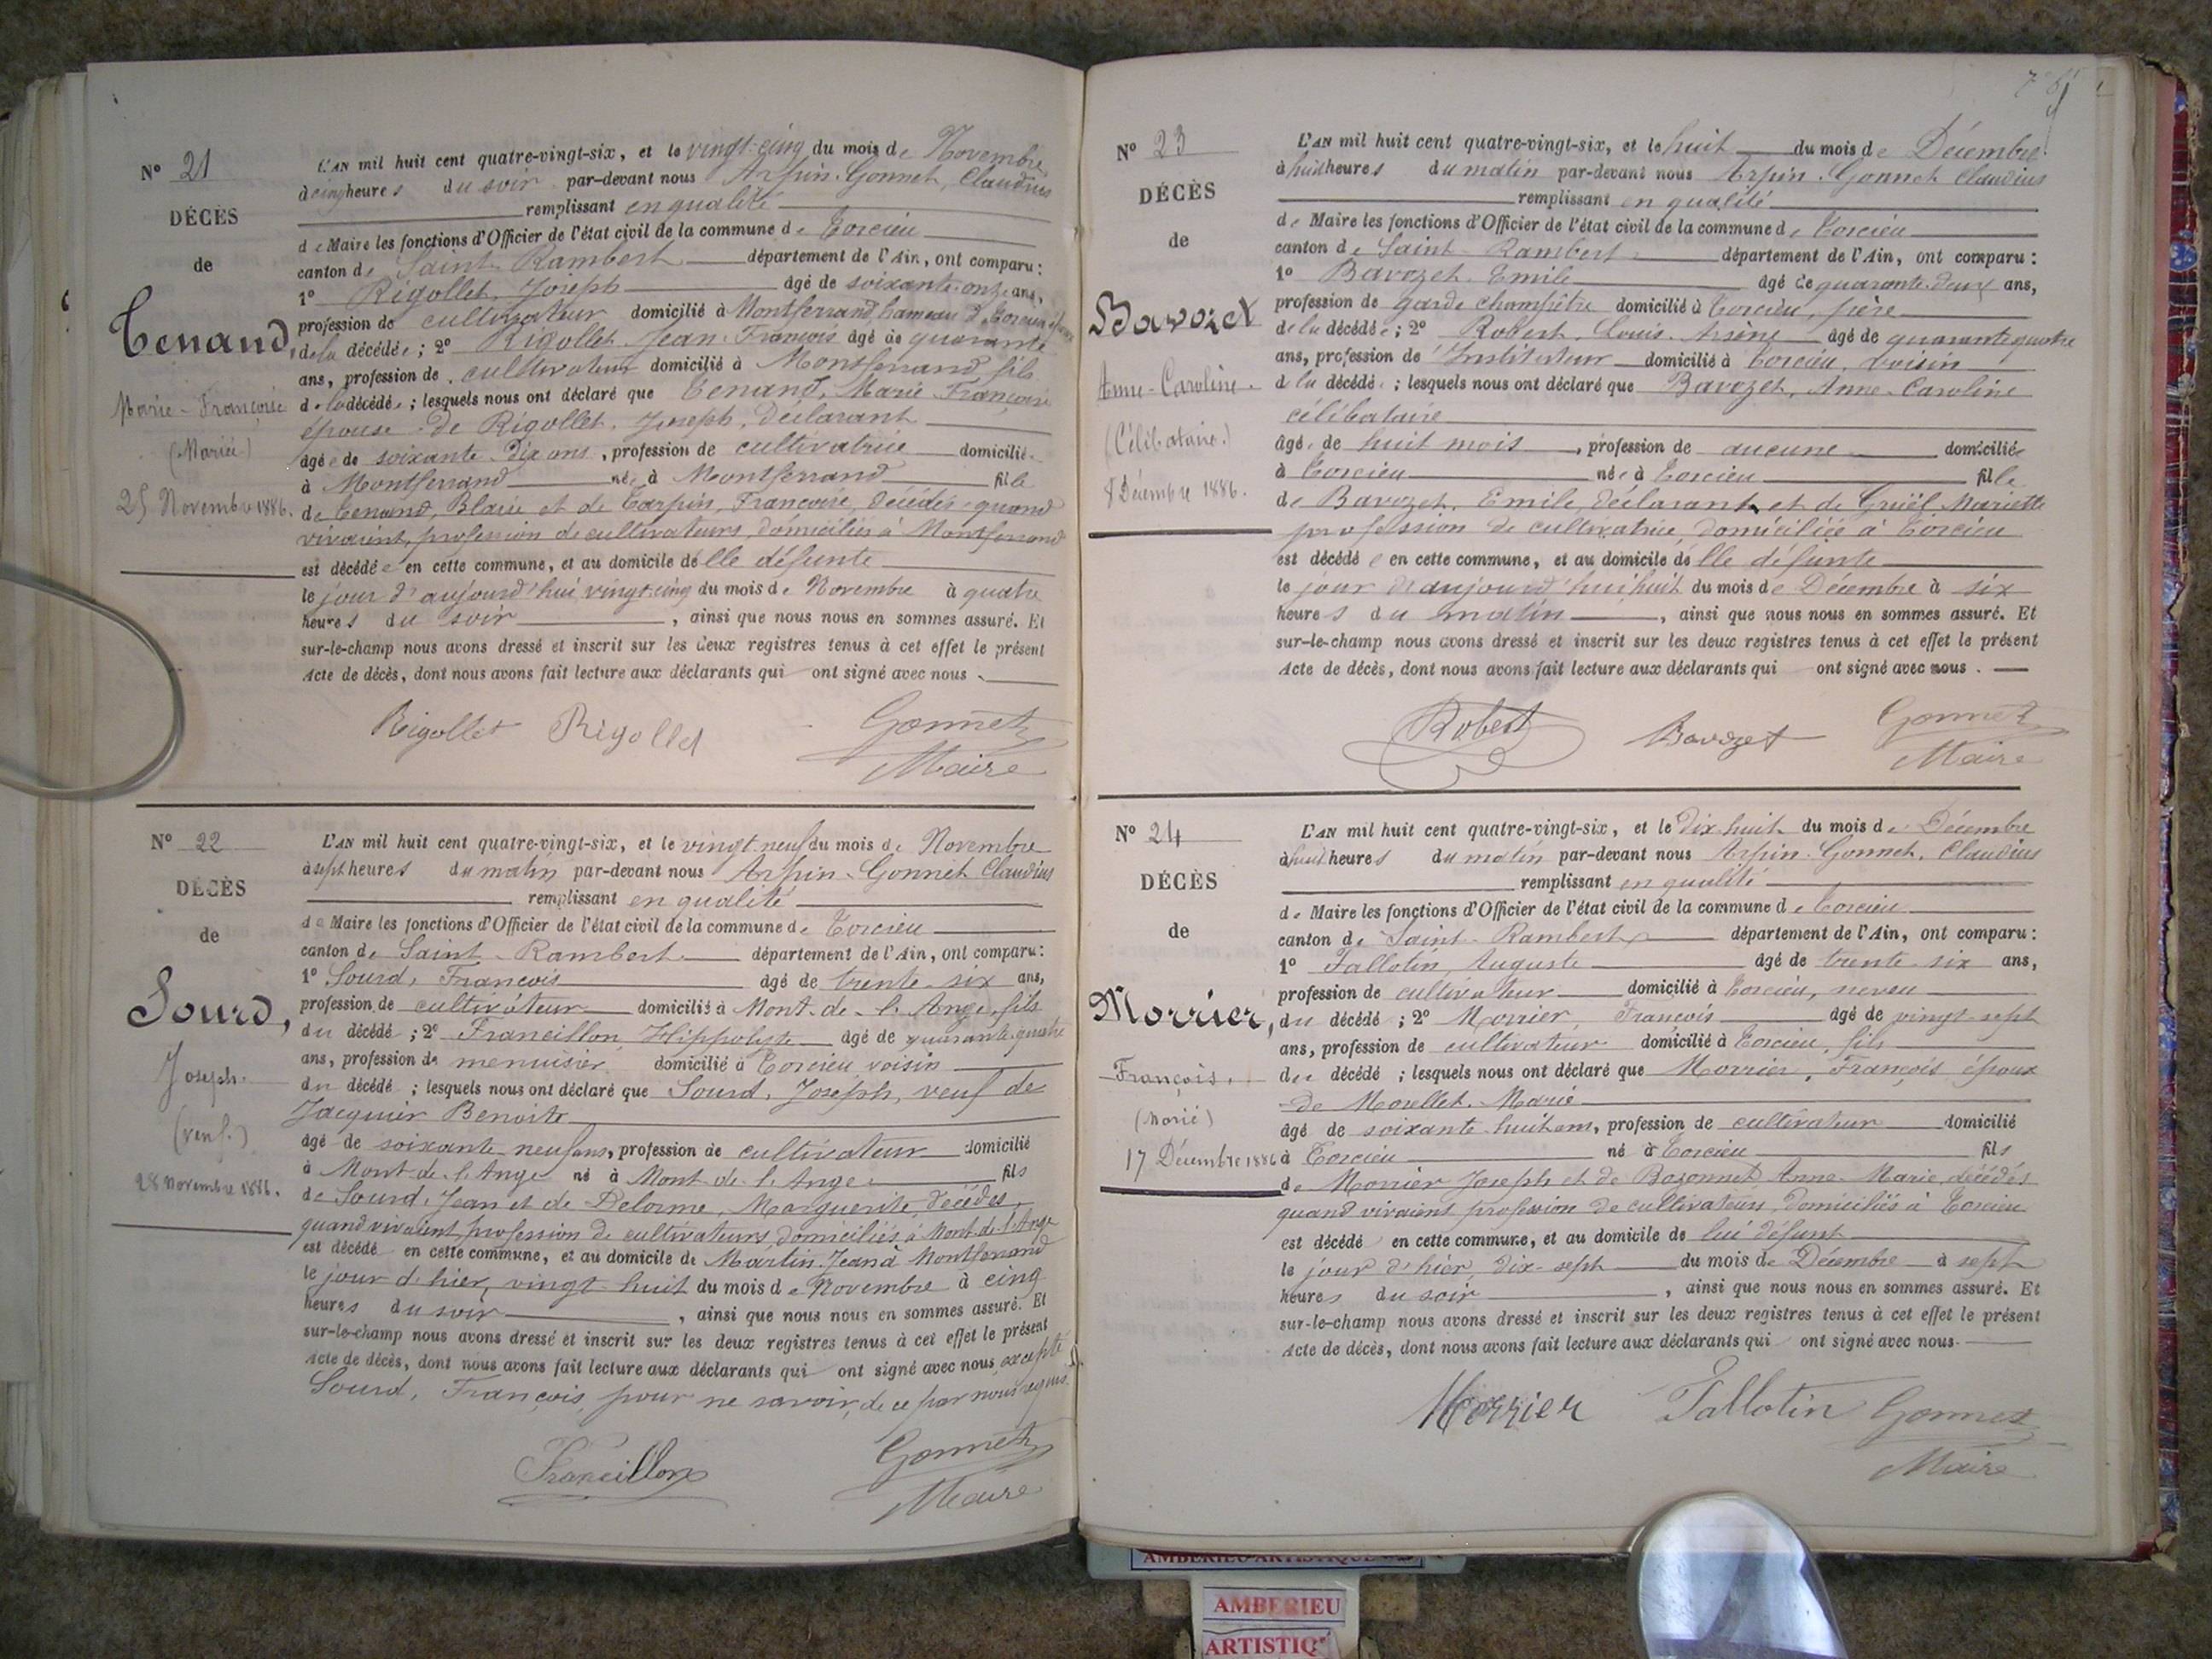 N° 21
DÉCÈS
de
Tenand,
Marie-Françoise
(Mariée)
25 Novembre 1886.
L'AN mil huit cent quatre-vingt-six, et le vingt-cinq du mois de Novembre
à cinq heures du soir par-devant nous Arpin-Gonnet, Claudius
remplissant en qualité
de Maire les fonctions d'Officier de l'état civil de la commune de Torcieu
canton de Saint-Rambert département de l'Ain, ont comparu:
1° Rigollet, Joseph âgé de soixante-onze ans,
profession de cultivateur domicilié à Montferrand, hameau de Torcieu époux
de la décédée; 2° Rigollet Jean-François âgé de quarante
ans, profession de cultivateur domicilié à Montferrand fils
de la décédée; lesquels nous ont déclaré que Tenand, Marie-Françoise
épouse de Rigollet, Joseph, déclarant
âgée de soixante-dix ans, profession de cultivatrice domiciliée
à Montferrand née à Montferrand fille
de Tenand, Blaise et de Carpin, Françoise, décédés quand
vivaient, profession de cultivateurs, domiciliés à Montferrand
est décédée en cette commune, et au domicile de lle défunte
le jour d'aujourd'hui vingt-cinq du mois de Novembre à quatre
heures du soir, ainsi que nous nous en sommes assuré. Et
sur-le-champ nous avons dressé et inscrit sur les deux registres tenus à cet effet le présent
Acte de décès, dont nous avons fait lecture aux déclarants qui ont signé avec nous.
Rigollet Rigollet Gonnet
Maire
N° 22
DÉCÈS
de
Sourd,
Joseph.
(veuf.)
28 Novembre 1886.
L'AN mil huit cent quatre-vingt-six, et le vingt-neuf du mois de Novembre
à sept heures du matin par-devant nous Arpin-Gonnet Claudius
remplissant en qualité
de Maire les fonctions d'Officier de l'état civil de la commune de Torcieu
canton de Saint-Rambert département de l'Ain, ont comparu:
1° Sourd, François âgé de trente-six ans,
profession de cultivateur domicilié à Mont-de-l'Ange, fils
du décédé; 2° Francillon, Hippolyte âgé de quarante-quatre
ans, profession de menuisier domicilié à Torcieu voisin
du décédé; lesquels nous ont déclaré que Sourd, Joseph, veuf de
Jacquier Benoite
âgé de soixante-neuf ans, profession de cultivateur domicilié
à Mont-de-l'Ange né à Mont-de-l'Ange fils
de Sourd, Jean et de Delorme, Marguerite, décédés
quand vivaient, profession de cultivateurs, domiciliés à Mont-de-l'Ange
est décédé en cette commune, et au domicile de Martin Jean à Montferrand
le jour d'hier, vingt-huit du mois de Novembre à cinq
heures du soir, ainsi que nous nous en sommes assuré. Et
sur-le-champ nous avons dressé et inscrit sur les deux registres tenus à cet effet le présent
Acte de décès, dont nous avons fait lecture aux déclarants qui ont signé avec nous excepté
Sourd, François, pour ne savoir, de ce par nous requis.
Francillon Gonnet
Maire
N° 23
DÉCÈS
de
Bavozet
Anne-Caroline.
(Célibataire.)
8 Décembre 1886.
L'AN mil huit cent quatre-vingt-six, et le huit du mois de Décembre
à huit heures du matin par-devant nous Arpin-Gonnet Claudius
remplissant en qualité
de Maire les fonctions d'Officier de l'état civil de la commune de Torcieu
canton de Saint-Rambert département de l'Ain, ont comparu:
1° Bavozet, Emile âgé de quarante-deux ans,
profession de garde champêtre domicilié à Torcieu, père
de la décédée; 2° Robert, Louis-Arsène âgé de quarante-quatre
ans, profession de Instituteur domicilié à Torcieu, voisin
de la décédée; lesquels nous ont déclaré que Bavozet, Anne-Caroline
célibataire
âgée de huit mois, profession de aucune domiciliée
à Torcieu née à Torcieu fille
de Bavozet, Emile, déclarant, et de Gruël Mariette
profession de cultivatrice, domiciliée à Torcieu
est décédée en cette commune, et au domicile de lle défunte
le jour d'aujourd'hui huit du mois de Décembre à six
heures du matin, ainsi que nous nous en sommes assuré. Et
sur-le-champ nous avons dressé et inscrit sur les deux registres tenus à cet effet le présent
Acte de décès, dont nous avons fait lecture aux déclarants qui ont signé avec nous.
Robert Bavozet Gonnet
Maire
N° 24
DÉCÈS
de
Morrier,
François.
(Marié)
17 Décembre 1886
L'AN mil huit cent quatre-vingt-six, et le dix-huit du mois de Décembre
à huit heures du matin par-devant nous Arpin-Gonnet, Claudius
remplissant en qualité
de Maire les fonctions d'Officier de l'état civil de la commune de Torcieu
canton de Saint-Rambert département de l'Ain, ont comparu:
1° Tallotin, Auguste âgé de trente-six ans,
profession de cultivateur domicilié à Torcieu, neveu
du décédé; 2° Morrier, François âgé de vingt-sept
ans, profession de cultivateur domicilié à Torcieu, fils
du décédé; lesquels nous ont déclaré que Morrier, François époux
de Morellet, Marie
âgé de soixante-huit ans, profession de cultivateur domicilié
à Torcieu né à Torcieu fils
de Morrier Joseph et de Bozonnet, Anne-Marie, décédés
quand vivaient profession de cultivateurs, domiciliés à Torcieu
est décédé en cette commune, et au domicile de lui défunt
le jour d'hier, dix-sept du mois de Décembre à sept
heures du soir, ainsi que nous nous en sommes assuré. Et
sur-le-champ nous avons dressé et inscrit sur les deux registres tenus à cet effet le présent
Acte de décès, dont nous avons fait lecture aux déclarants qui ont signé avec nous.
Morrier Tallotin Gonnet
Maire
AMBERIEU ARTISTIQUE
AMBERIEU
ARTISTIQ